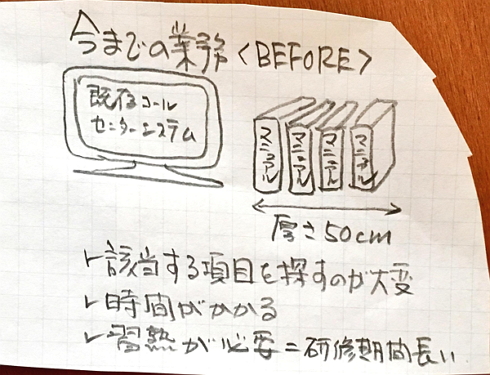 今までの業務<BEFORE>
既存コール
センターシステム
マニュアル
マニュアル
マニュアル
マニュアル
厚さ50cm
✓該当する項目を探すのが大変
✓時間がかかる
✓習熟が必要=研修期間長い